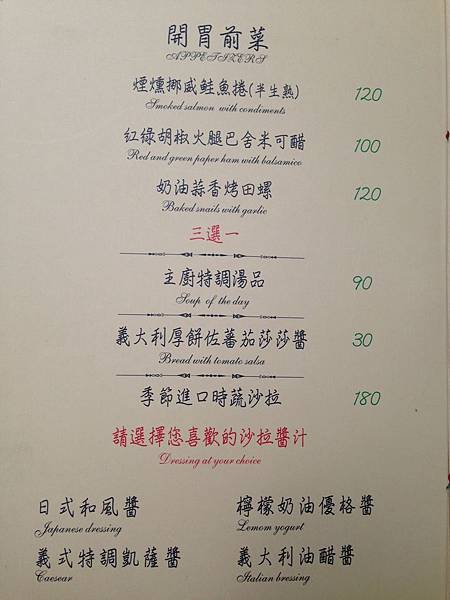 開胃前菜
APPETIZERS
煙燻挪威鮭魚捲(半生熟) 120
Smoked salmon with condiments
紅綠胡椒火腿巴舍米可醋 100
Red and green paper ham with balsamico
奶油蒜香烤田螺 120
Baked snails with garlic
三選一
主廚特調湯品 90
Soup of the day
義大利厚餅佐蕃茄莎莎醬 30
Bread with tomato salsa
季節進口時蔬沙拉 180
請選擇您喜歡的沙拉醬汁
Dressing at your choice
日式和風醬 檸檬奶油優格醬
Japanese dressing Lemom yogurt
義式特調凱薩醬 義大利油醋醬
Caesear Italian bressing